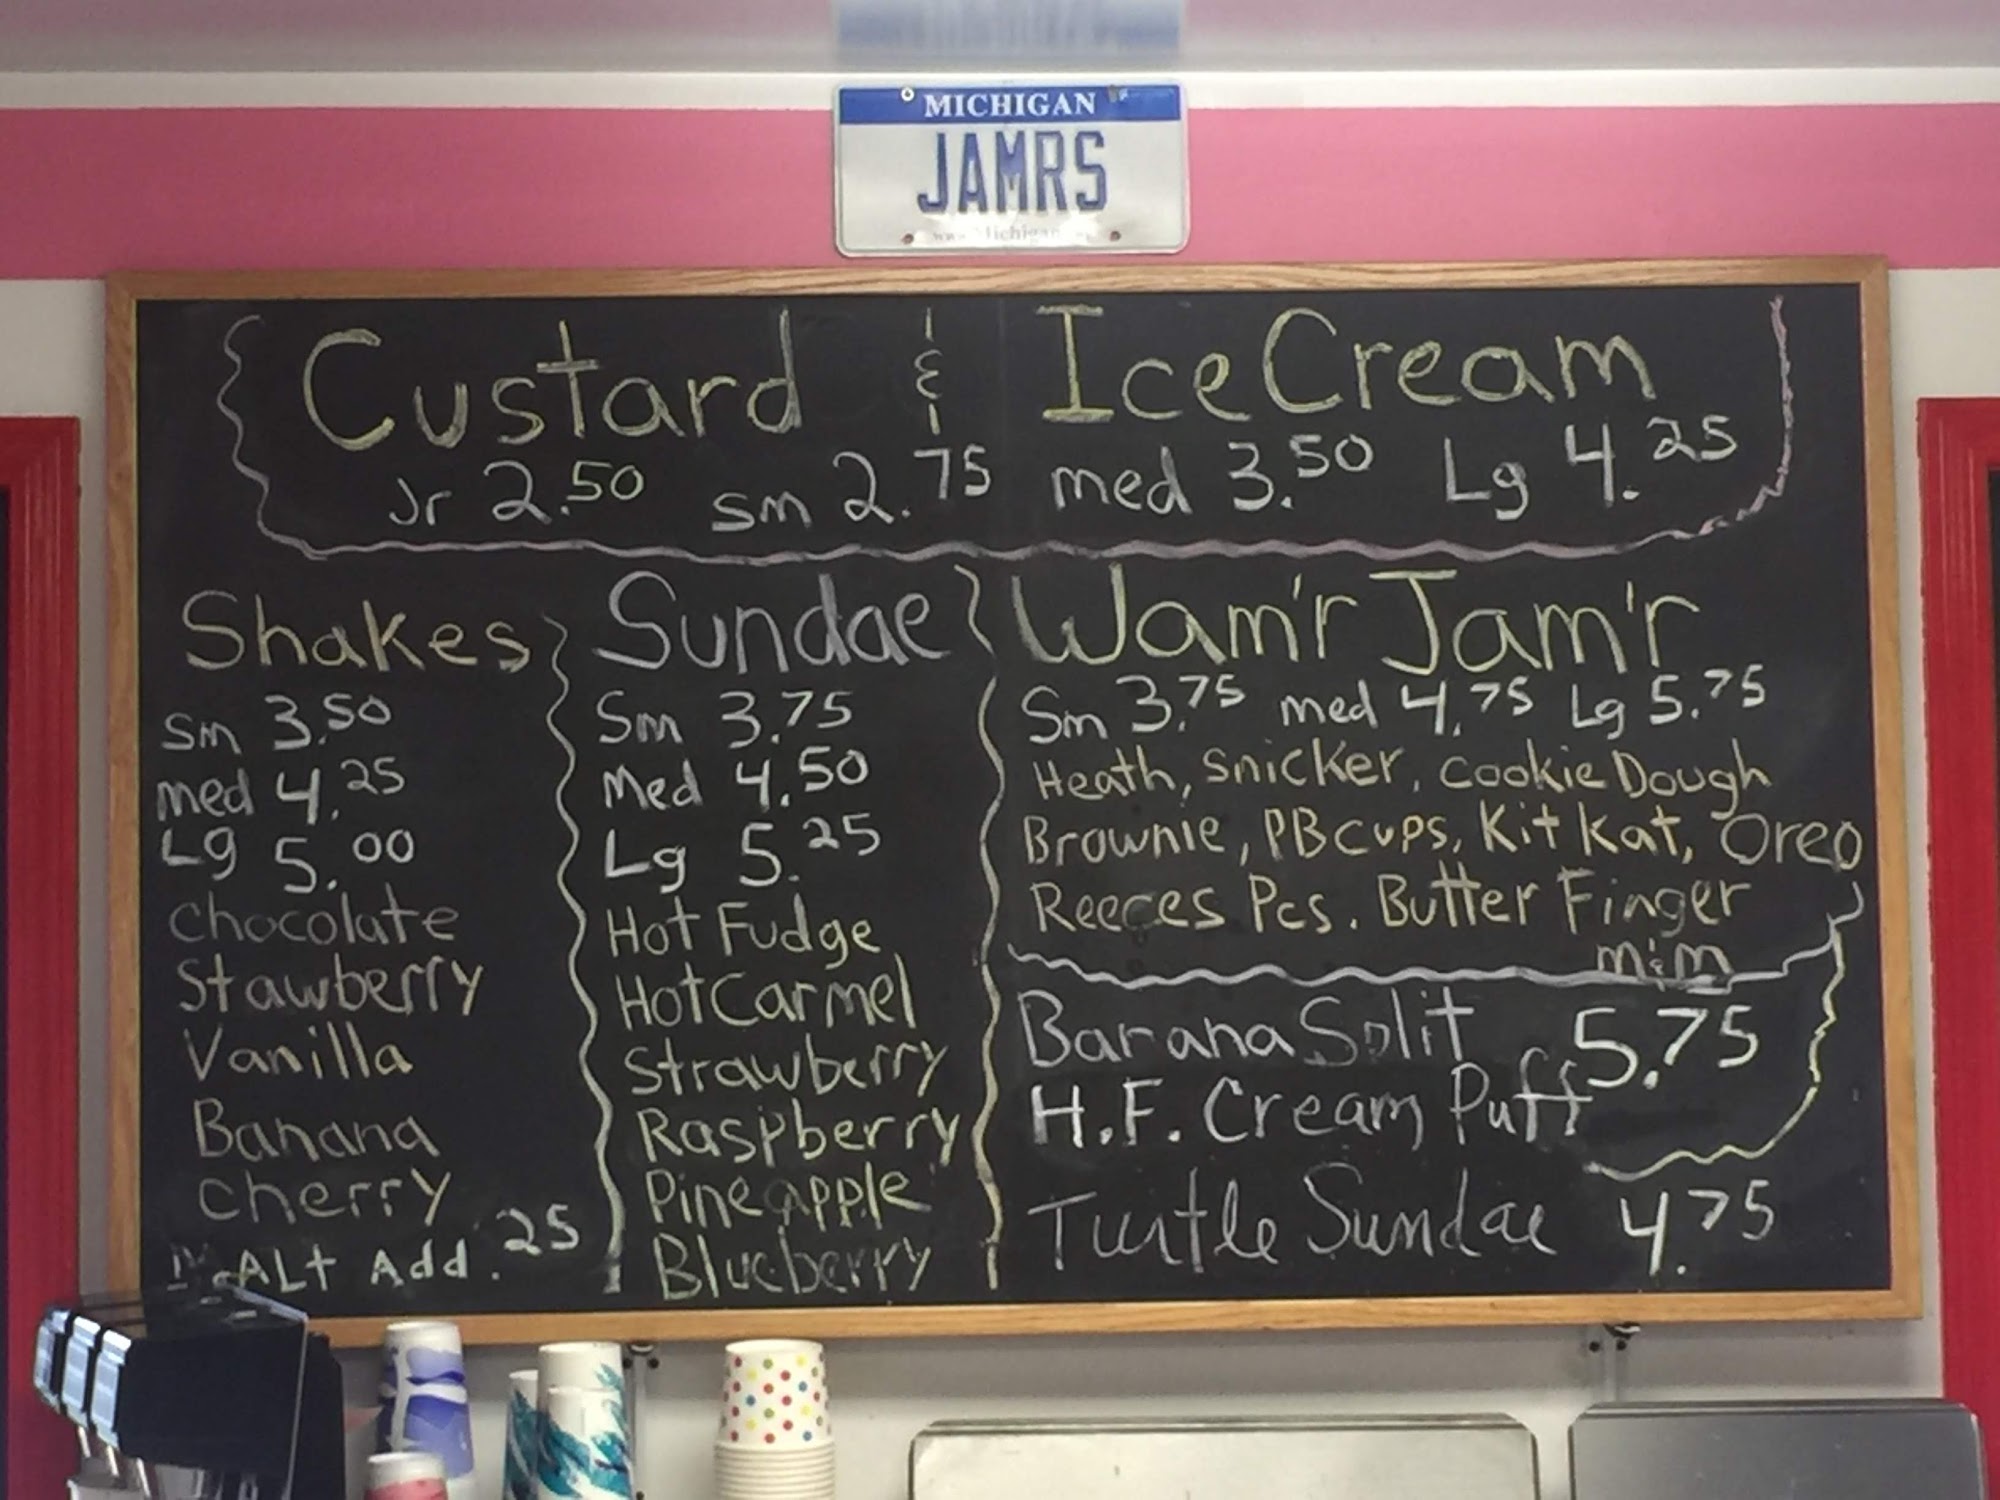 MICHIGAN
JAMRS
Custard & Ice Cream
Jr 2.50 sm 2.75 med 3.50 Lg 4.25
Shakes
Sm 3.50
med 4.25
Lg 5.00
Chocolate
Stawberry
Vanilla
Banana
Cherry
MALt Add .25
Sundae
Sm 3.75
Med 4.50
Lg 5.25
Hot Fudge
Hot Carmel
Strawberry
Raspberry
Pineapple
Blueberry
Wam'r Jam'r
Sm 3.75 med 4.75 Lg 5.75
Heath, Snicker, Cookie Dough
Brownie, PB Cups, Kit Kat, Oreo
Reeces Pcs. Butter Finger
m&m
Banana Split 5.75
H.F. Cream Puff
Turtle Sundae 4.75